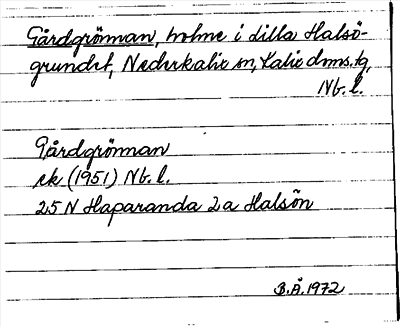 Gårdgrönnan, holme i Lilla Halsö-
grundet, Nederkalix sn, Kalix dms. tg,
Nb. l.
Gårdgrönnan
ek (1951) Nb. l.
25 N Haparanda 2a Halsön
B.Å. 1972